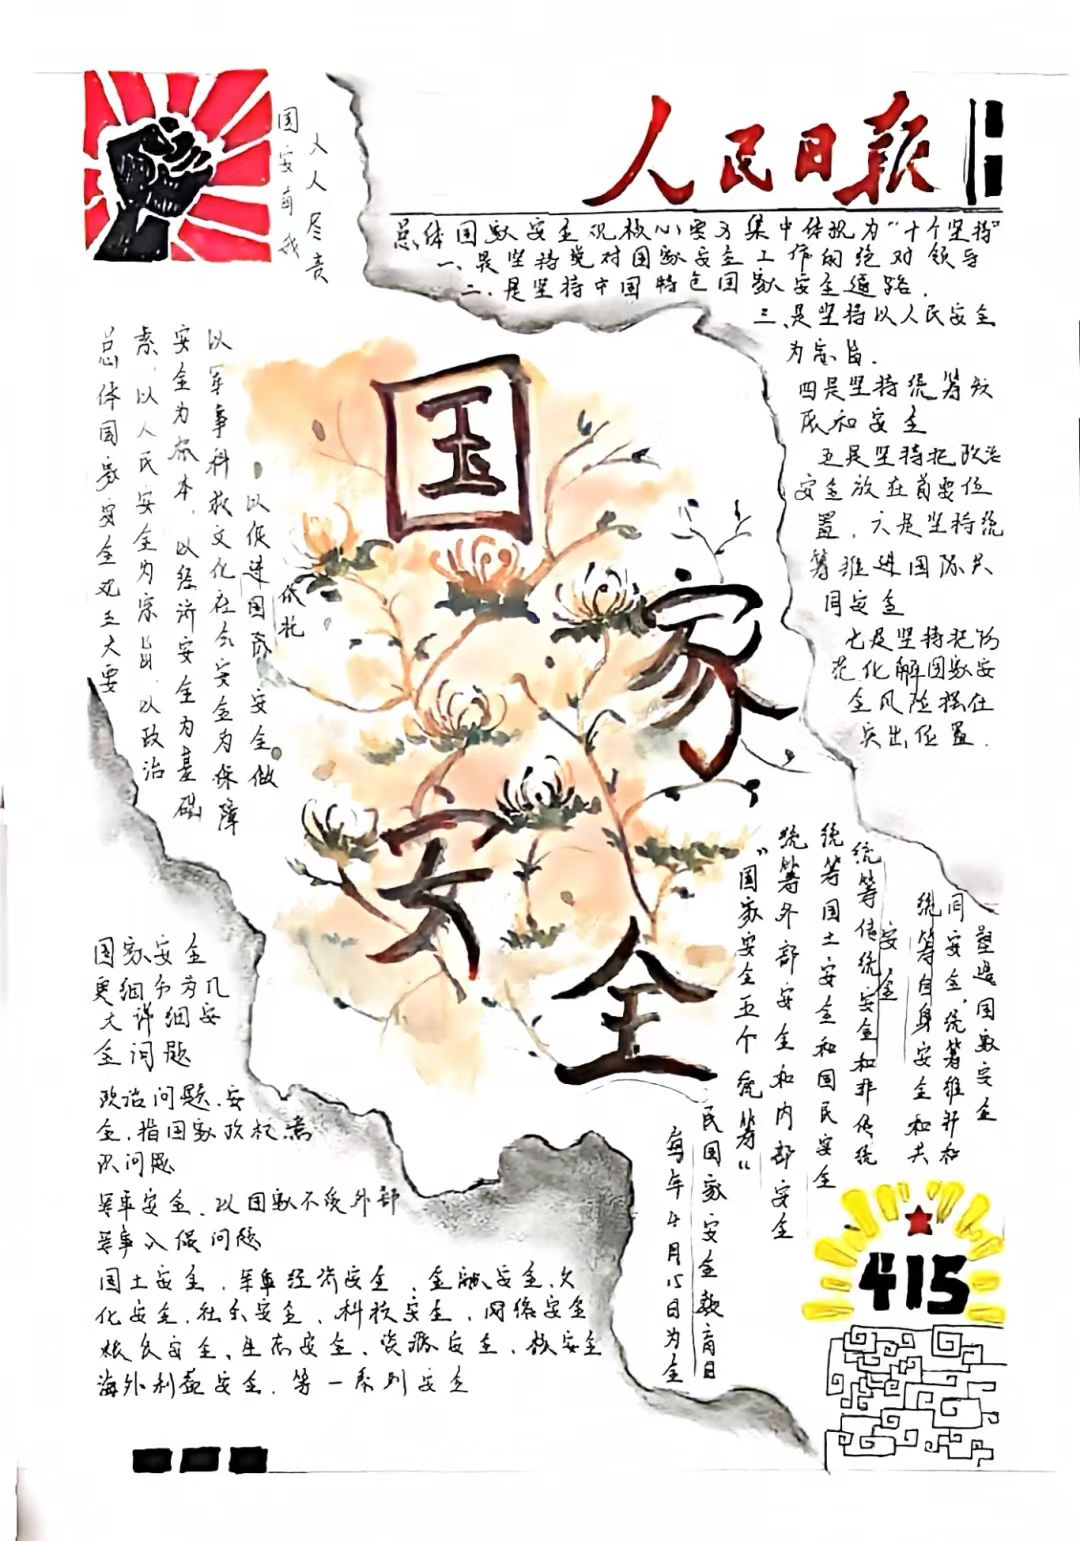 人民日报
国安有我
人人尽责
总体国家安全观核心要义集中体现为“十个坚持”
一、是坚持党对国家安全工作的绝对领导
二、是坚持中国特色国家安全道路.
三、是坚持以人民安全
为宗旨.
四是坚持统筹发
展和安全
五是坚持把政治
安全放在首要位
置，六是坚持统
筹推进国际共
同安全
七是坚持把防
范化解国家安
全风险摆在
突出位置.
国家安全
总体国家安全观五大要
素，以人民安全为宗旨，以政治
安全为根本，以经济安全为基础
以军事科技文化社会安全为保障
以促进国际安全做
依托
国家安全
更细分为几
大详细安
全问题
政治问题.安
全,指国家政权.意
识问题
军事安全.以国家不受外部
军事入侵问题
国土安全.军事经济安全.金融安全.文
化安全.社会安全.科技安全.网络安全
粮食安全、生态安全.资源安全.核安全
海外利益安全.等一系列安全
塑造国家安全
同安全,统筹维护和
统筹自身安全和共
安全
统筹传统安全和非传统
统筹国土安全和国民安全
统筹外部安全和内部安全
“国家安全五个统筹”
民国家安全教育日
每年4月15日为全
415